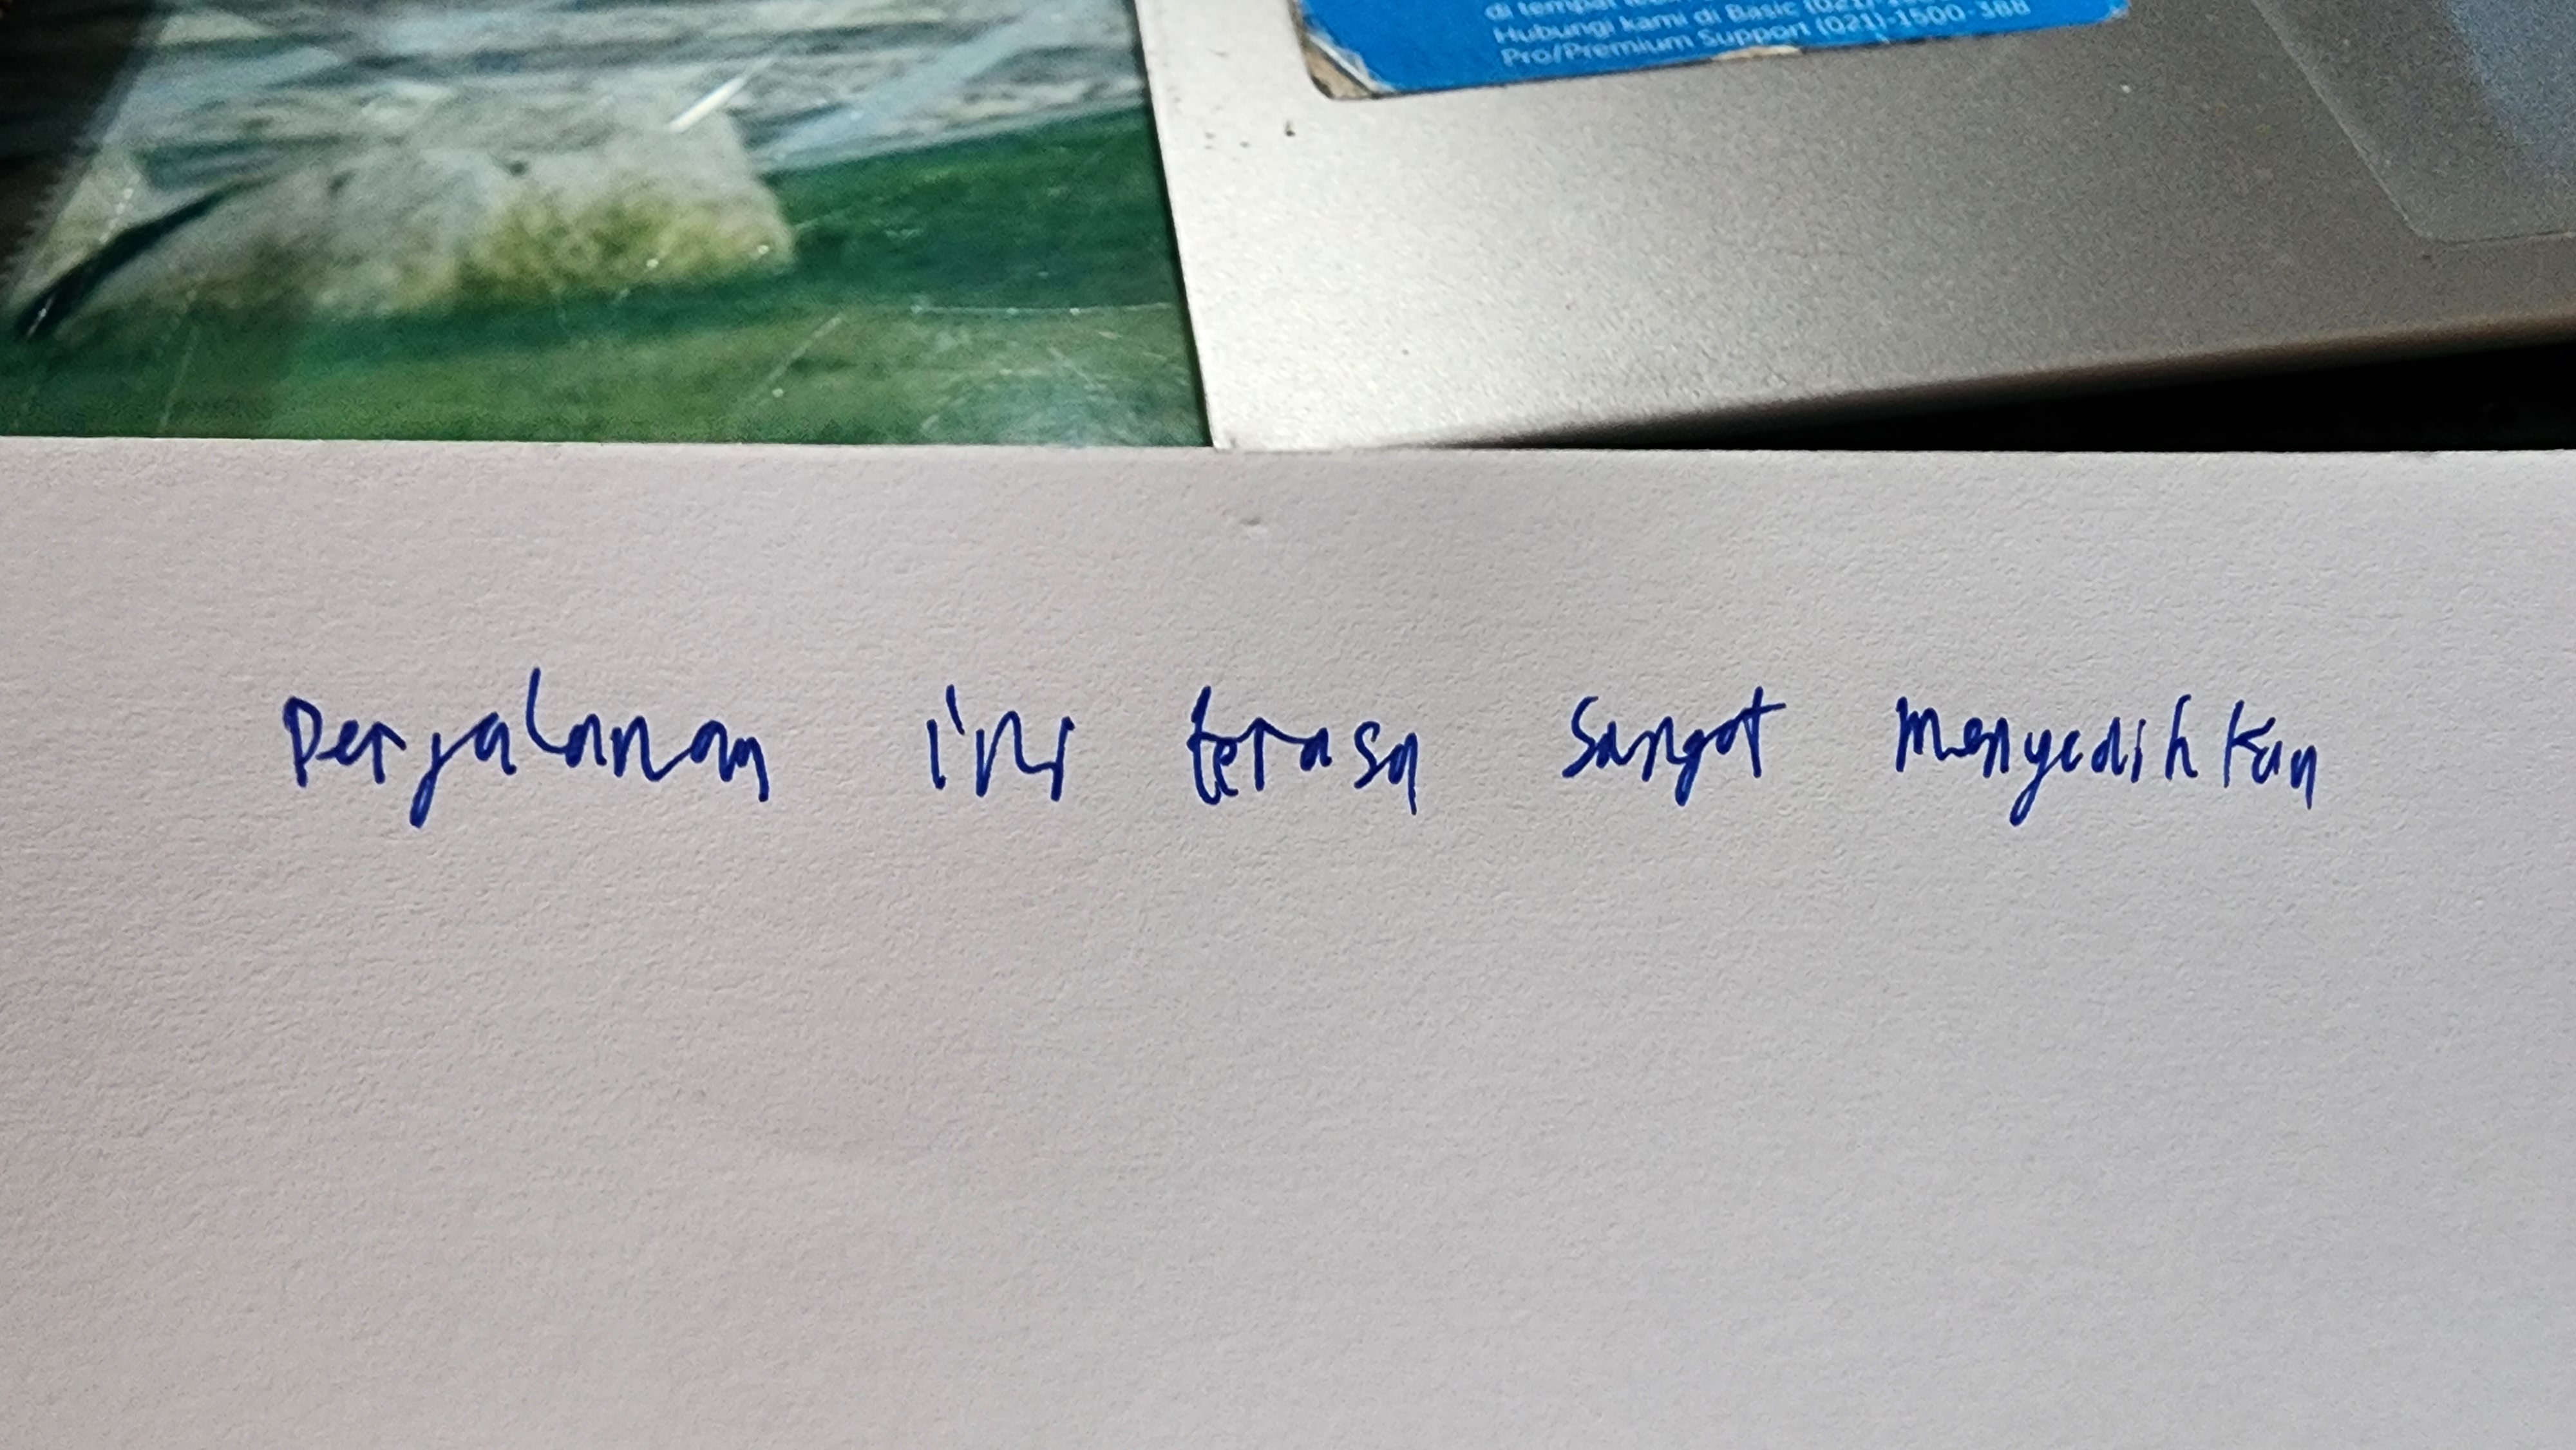 Hubungi kami di Basic (021)-
Pro/Premium Support (021)-1500-388
Perjalanan ini terasa sangat menyedihkan